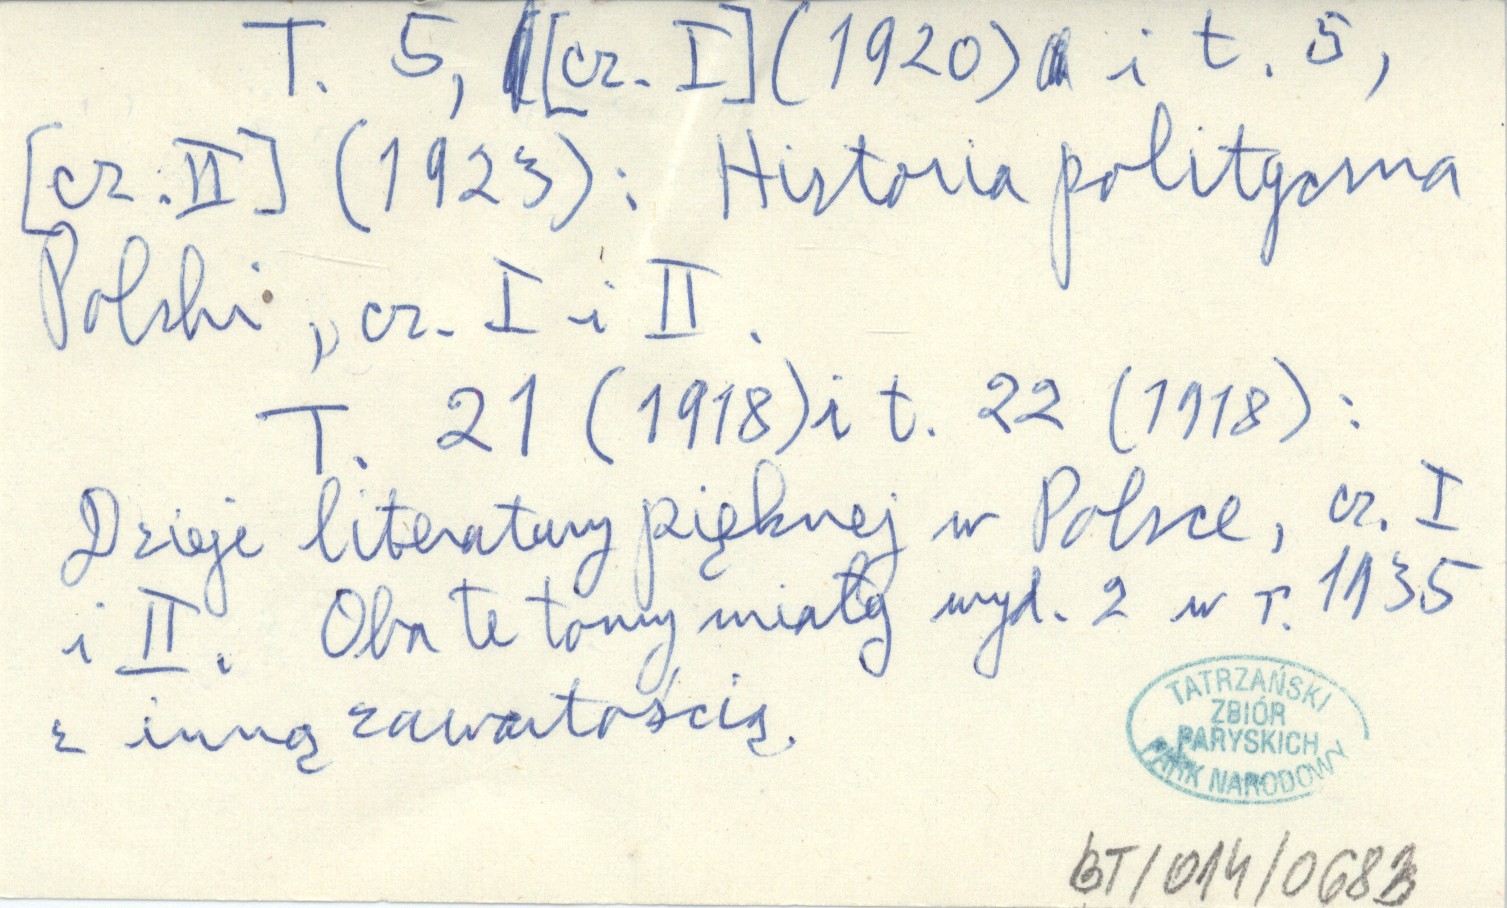 T. 5, [cz. I] (1920) i t. 5,
[cz. II] (1923): Historia polityczna
Polski, cz. I i II.
T. 21 (1918) i t. 22 (1918):
Dzieje literatury pięknej w Polsce, cz. I
i II. Oba te tomy miały wyd. 2 w r. 1935
z inną zawartością.
TATRZAŃSKI
ZBIÓR
PARYSKICH
PARK NARODOWY
BT/014/0683